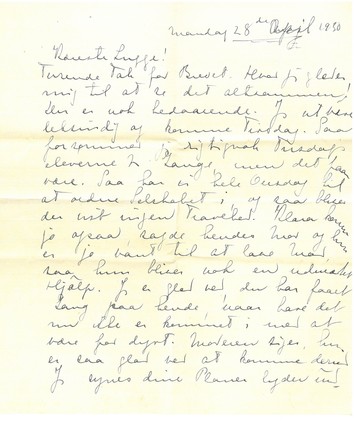 mandag 28de April 1930
Kæreste Sugge!
Tusende Tak for Brevet. Hvor jeg glæder
mig til at se det altsammen!
Den er nok bedaarende. Jeg vil være
og komme Tirsdag. Saa
forsømmer jeg rigtignok Tirsdags
eleverne 2 Gange men det faar
være. Saa har vi hele Onsdag til
at ordne Selskabet i, og saa bliver
der vist ingen Travlhed. Klara kommer
jo ogsaa sagde hendes Mor og hun
er jo vant til at lave Mad,
saa hun bliver nok en udmærket
Hjælp. Jeg er glad ved du har faaet
Sang paa hende, naar bare det
nu ikke er kommet i med at
være for dyrt. Moderen siger, hun
er saa glad ved at komme derud
Jeg synes dine Planer lyder